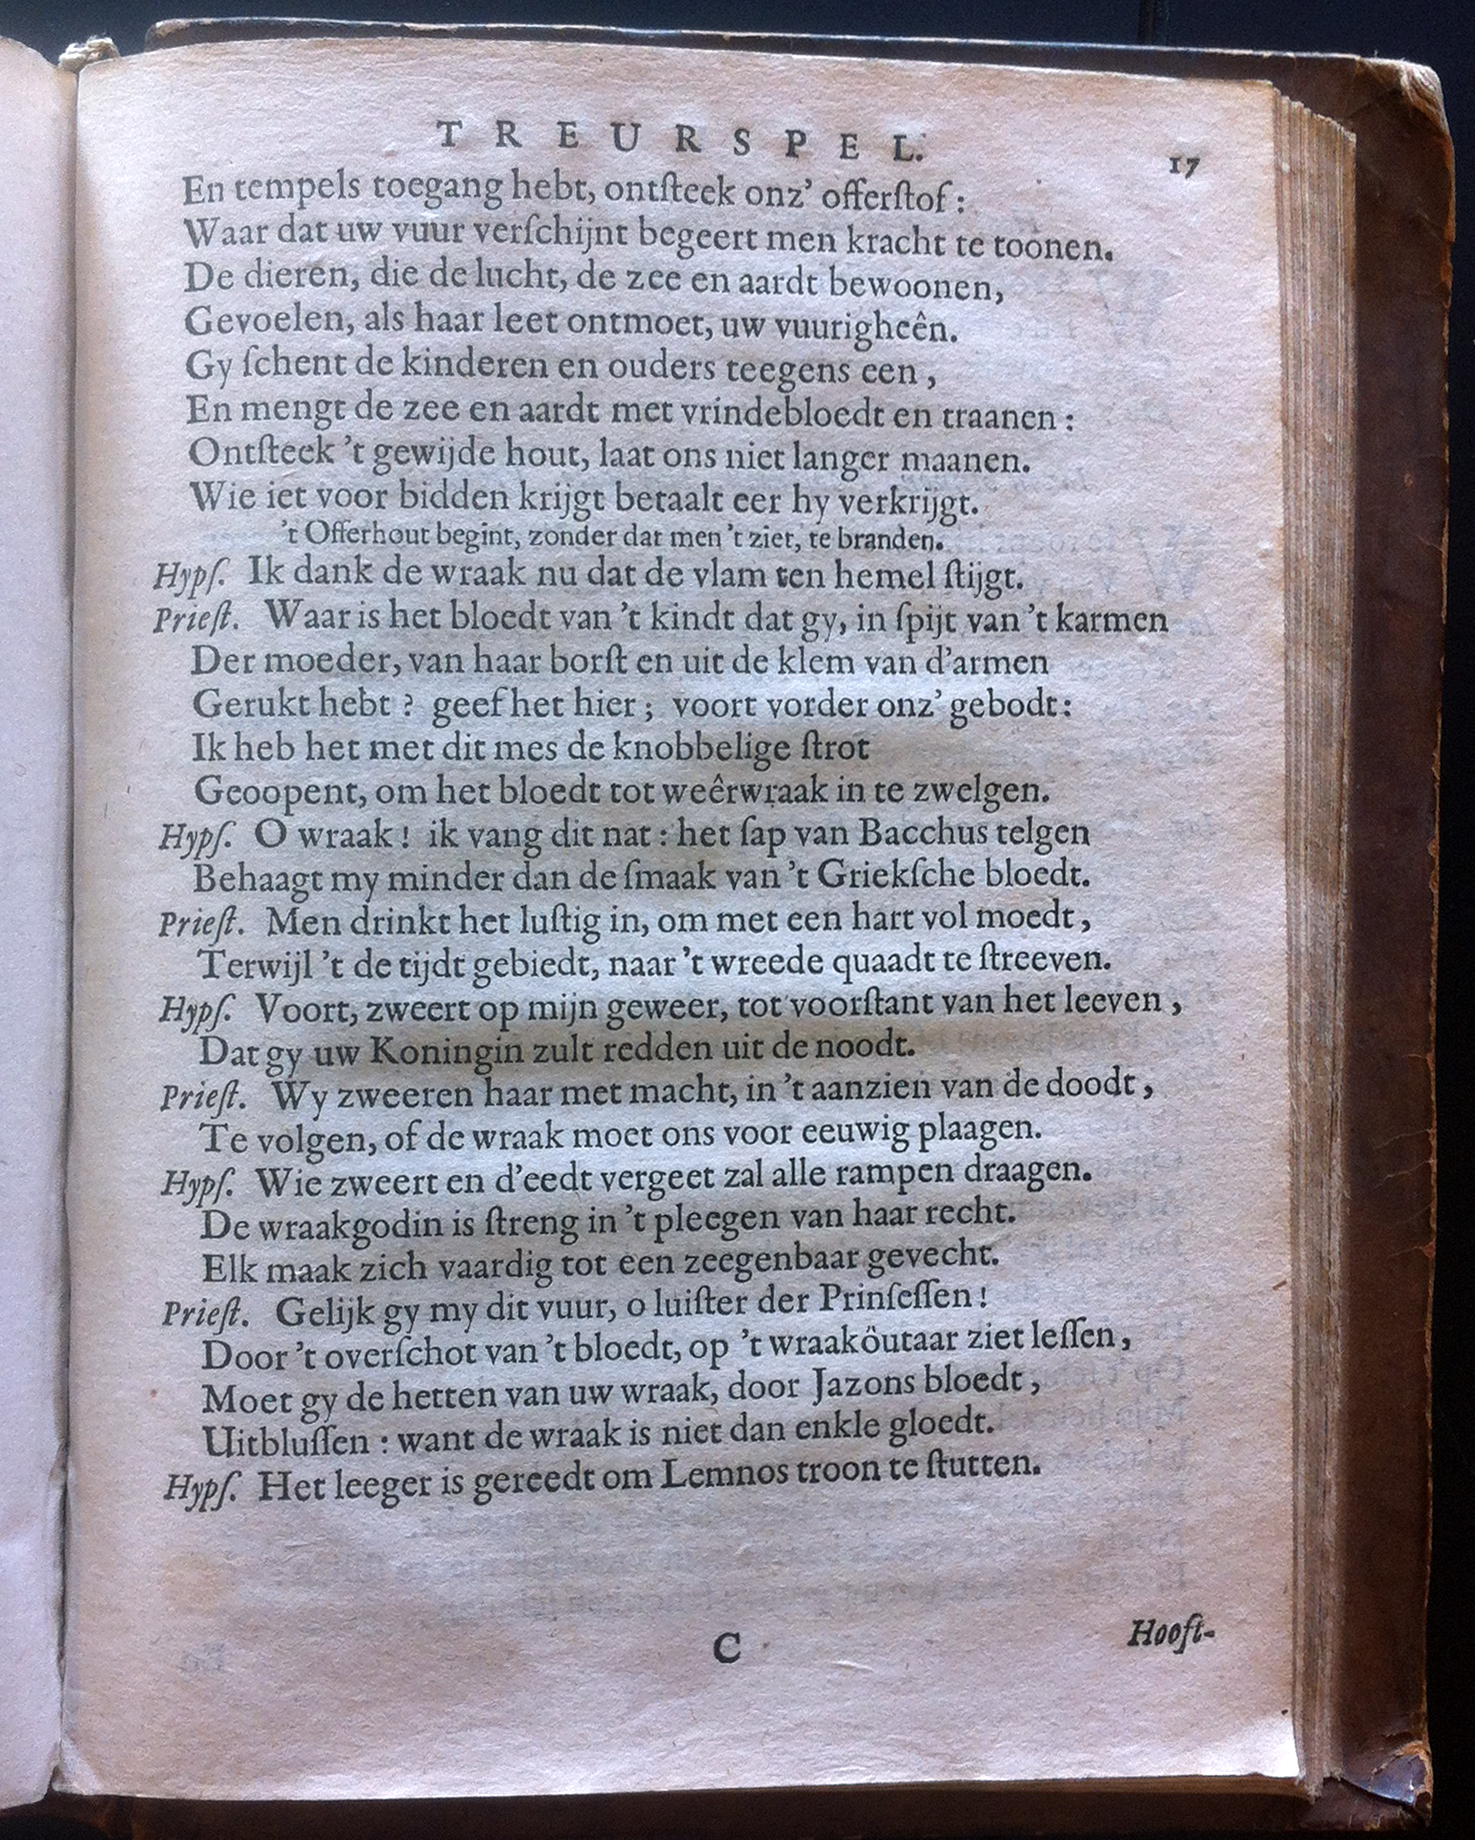 TREURSPEL. 17
En tempels toegang hebt, ontſteek onz' offerſtof :
Waar dat uw vuur verſchijnt begeert men kracht te toonen.
De dieren, die de lucht, de zee en aardt bewoonen,
Gevoelen, als haar leet ontmoet, uw vuurigheên.
Gy ſchent de kinderen en ouders teegens een ,
En mengt de zee en aardt met vrindebloedt en traanen :
Ontſteek 't gewijde hout, laat ons niet langer maanen.
Wie iet voor bidden krijgt betaalt eer hy verkrijgt.
't Offerhout begint, zonder dat men 't ziet, te branden.
Hypſ. Ik dank de wraak nu dat de vlam ten hemel ſtijgt.
Prieſt. Waar is het bloedt van 't kindt dat gy, in ſpijt van 't karmen
Der moeder, van haar borſt en uit de klem van d'armen
Gerukt hebt ? geef het hier ; voort vorder onz' gebodt :
Ik heb het met dit mes de knobbelige ſtrot
Geoopent, om het bloedt tot weêrwraak in te zwelgen.
Hypſ. O wraak ! ik vang dit nat : het ſap van Bacchus telgen
Behaagt my minder dan de ſmaak van 't Griekſche bloedt.
Prieſt. Men drinkt het luſtig in, om met een hart vol moedt ,
Terwijl 't de tijdt gebiedt, naar 't wreede quaadt te ſtreeven.
Hypſ. Voort, zweert op mijn geweer, tot voorſtant van het leeven ,
Dat gy uw Koningin zult redden uit de noodt.
Prieſt. Wy zweeren haar met macht, in 't aanzien van de doodt ,
Te volgen, of de wraak moet ons voor eeuwig plaagen.
Hypſ. Wie zweert en d'eedt vergeet zal alle rampen draagen.
De wraakgodin is ſtreng in 't pleegen van haar recht.
Elk maak zich vaardig tot een zeegenbaar gevecht.
Prieſt. Gelijk gy my dit vuur, o luiſter der Prinſeſſen !
Door 't overſchot van 't bloedt, op 't wraaköutaar ziet leſſen ,
Moet gy de hetten van uw wraak, door Jazons bloedt ,
Uitbluſſen : want de wraak is niet dan enkle gloedt.
Hypſ. Het leeger is gereedt om Lemnos troon te ſtutten.
C Hooft-